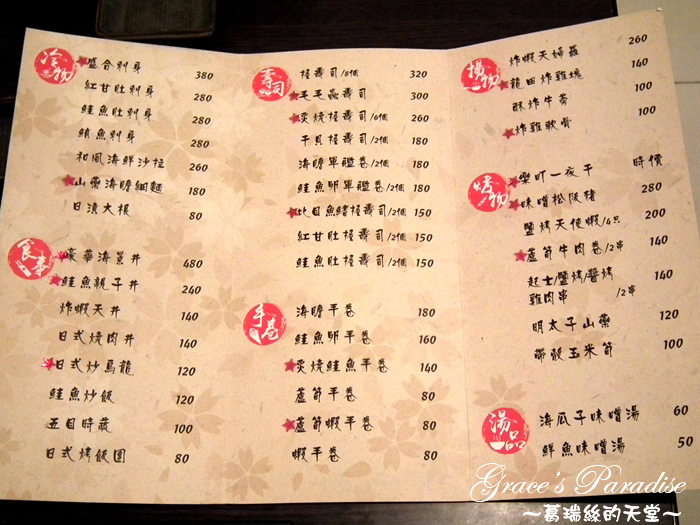 冷物
盛合刺身 380
紅甘肚刺身 280
鮭魚肚刺身 280
鮪魚刺身 280
和風海鮮沙拉 260
山藥海膽細麵 180
日漬大根 80
食事
豪華海景丼 480
鮭魚親子丼 240
炸蝦天丼 140
日式燒肉丼 140
日式炒烏龍 120
鮭魚炒飯 120
五目時蔬 100
日式烤飯團 80
壽司
握壽司/8個 320
毛毛蟲壽司 300
炙燒握壽司/6個 260
干貝握壽司/2個 180
海膽軍艦卷/2個 180
鮭魚卵軍艦卷/2個 180
比目魚鰭握壽司/2個 150
紅甘肚握壽司/2個 150
鮭魚肚握壽司/2個 150
手卷
海膽手卷 180
鮭魚卵手卷 160
炙燒鮭魚手卷 140
蘆筍手卷 80
蘆筍蝦手卷 80
蝦手卷 80
揚物
炸蝦天婦羅 260
龍田炸雞塊 140
酥炸牛蒡 100
炸雞軟骨 100
烤物
樂町一夜干 時價
味噌松阪豬 280
鹽烤天使蝦/4只 200
蘆筍牛肉卷/2串 140
起士/鹽烤/醬烤 140
雞肉串 /2串
明太子山藥 120
帶殼玉米筍 100
湯品
海瓜子味噌湯 60
鮮魚味噌湯 50
Grace's Paradise
～葛瑞絲的天堂～